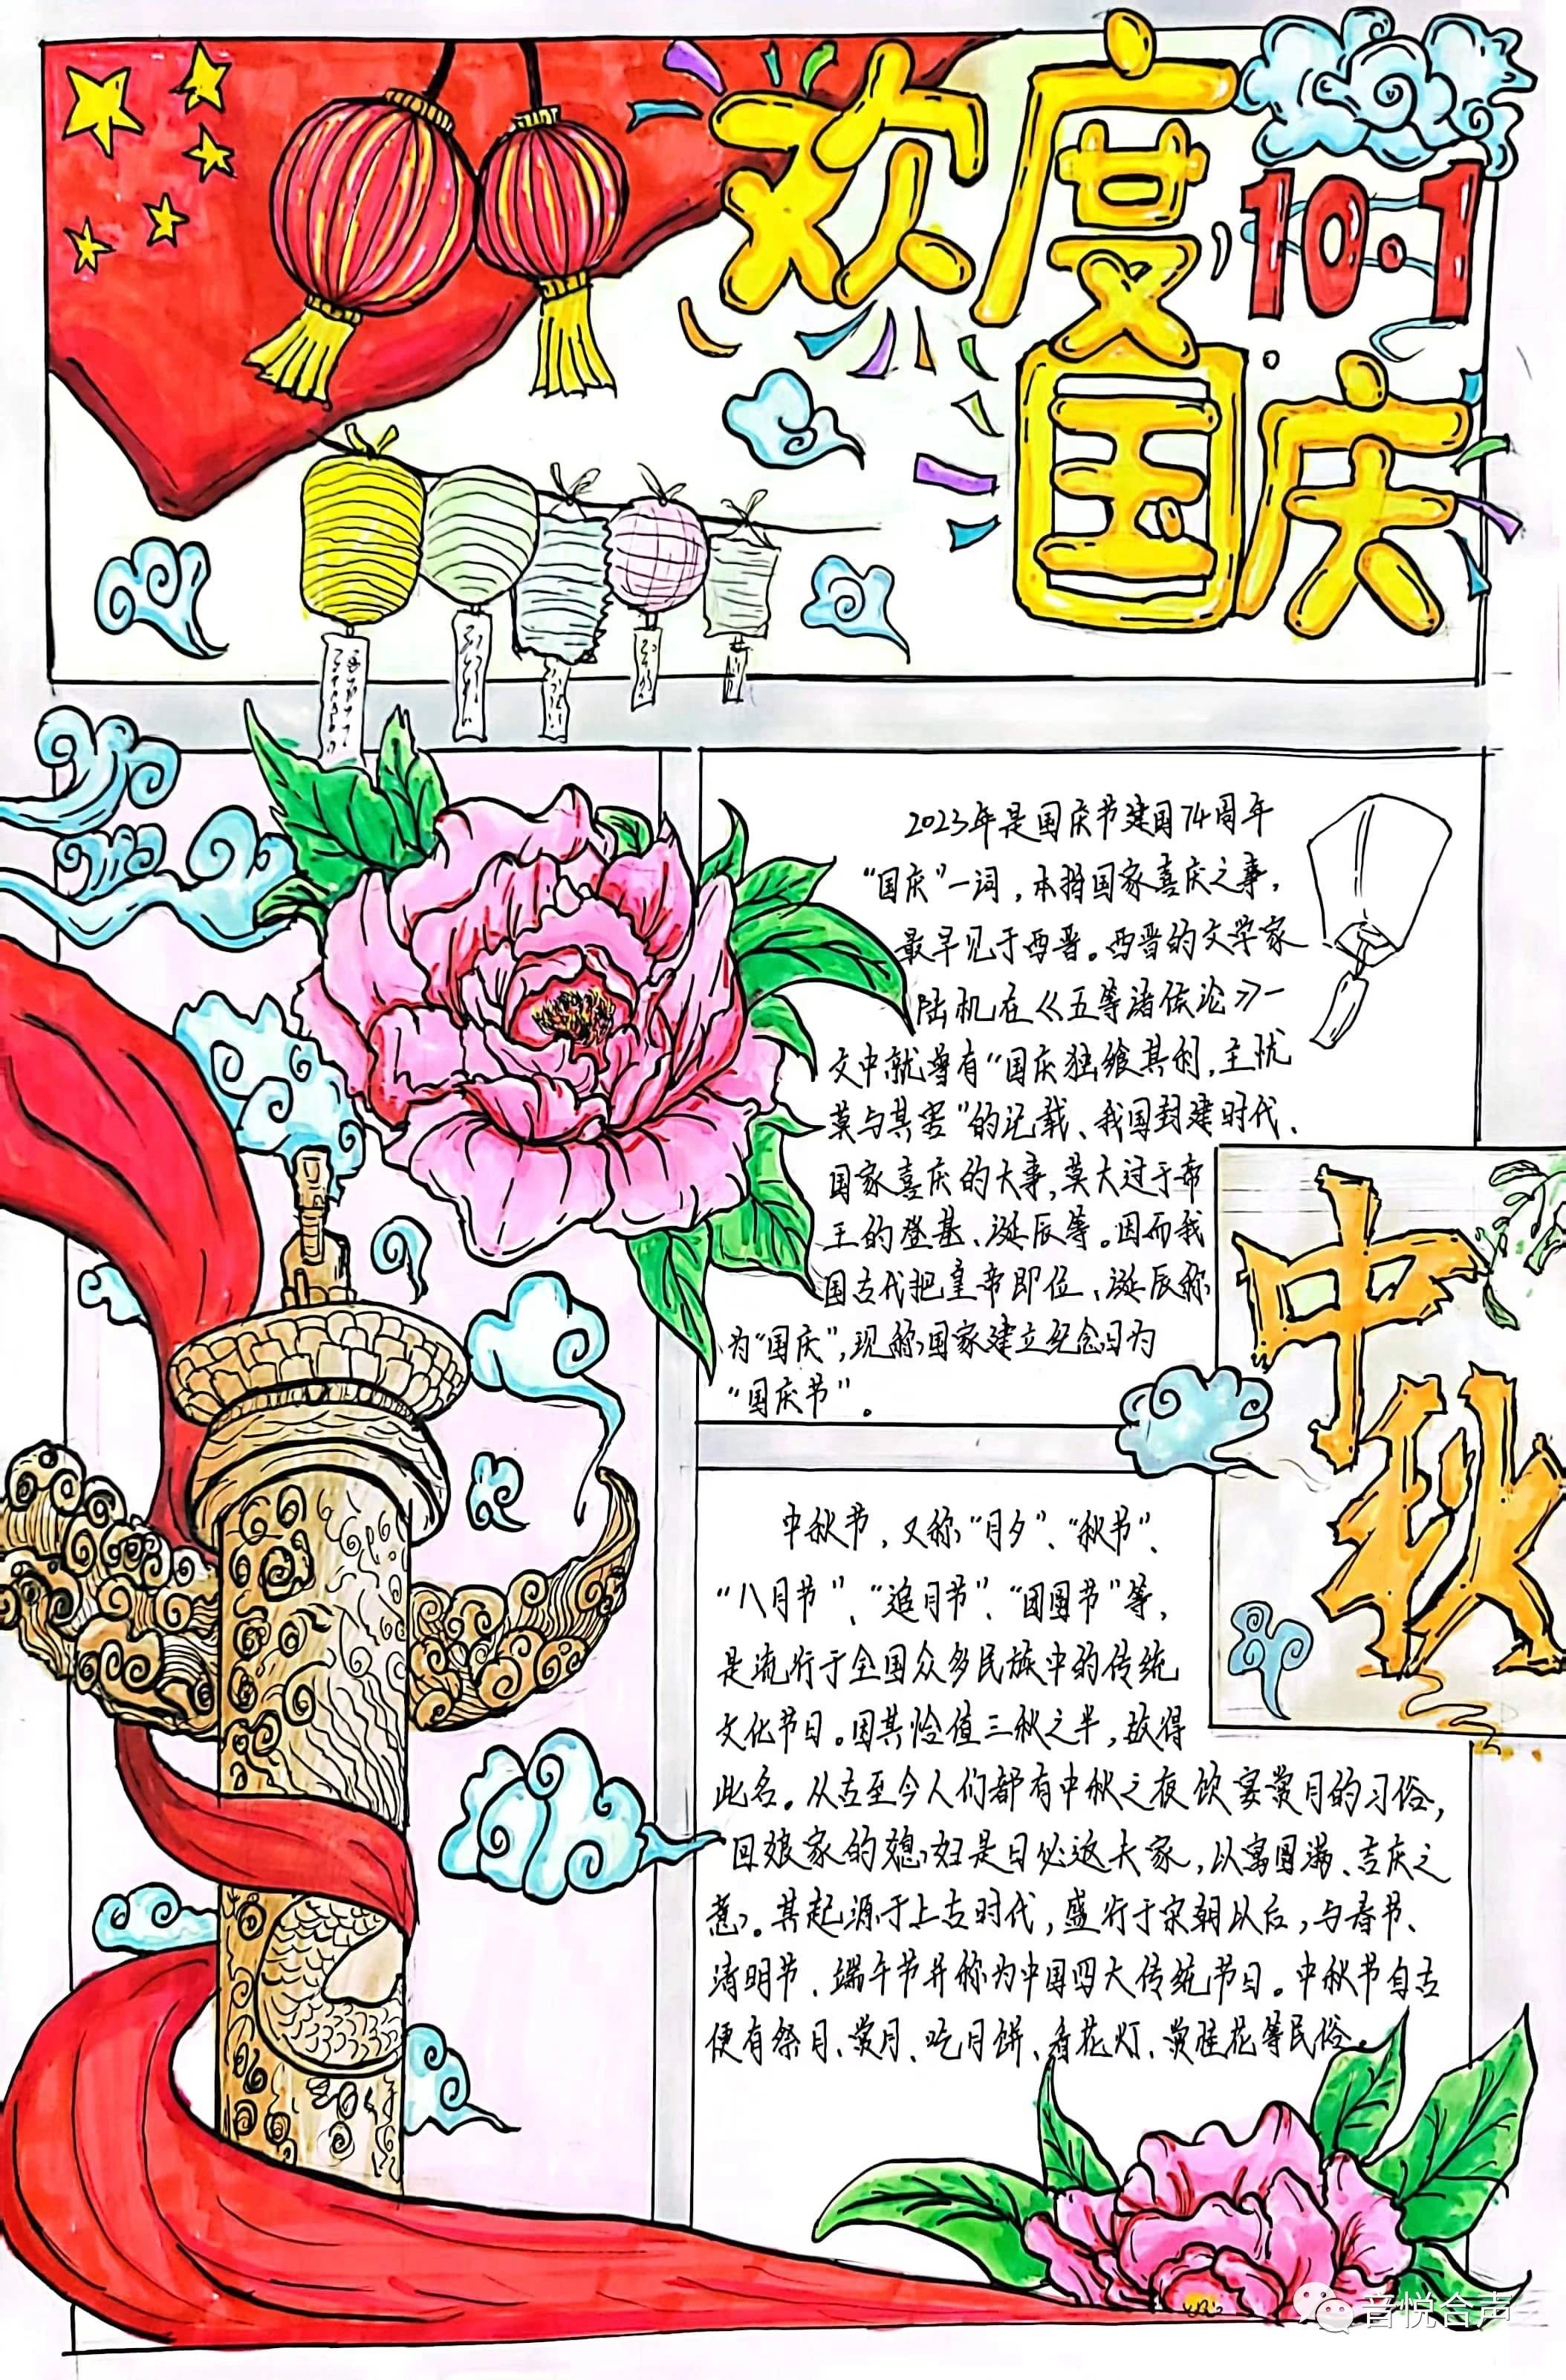 欢度
10·1
国庆
2023年是国庆节建国74周年
“国庆”一词，本指国家喜庆之事，
最早见于西晋。西晋的文学家
陆机在《五等诸侯论》一
文中就曾有“国庆独飨其利，主忧
莫与其害”的记载、我国封建时代、
国家喜庆的大事，莫大过于帝
王的登基、诞辰等。因而我
国古代把皇帝即位、诞辰称
为“国庆”，现称国家建立纪念日为
“国庆节”。
中秋
中秋节，又称“月夕”、“秋节”、
“八月节”、“追月节”、“团圆节”等，
是流行于全国众多民族中的传统
文化节日。因其恰值三秋之半，故得
此名。从古至今人们都有中秋之夜饮宴赏月的习俗，
回娘家的媳妇是日必返夫家，以寓圆满、吉庆之
意。其起源于上古时代，盛行于宋朝以后，与春节、
清明节、端午节并称为中国四大传统节日。中秋节自古
便有祭月、赏月、吃月饼、看花灯、赏桂花等民俗。
音悦合声